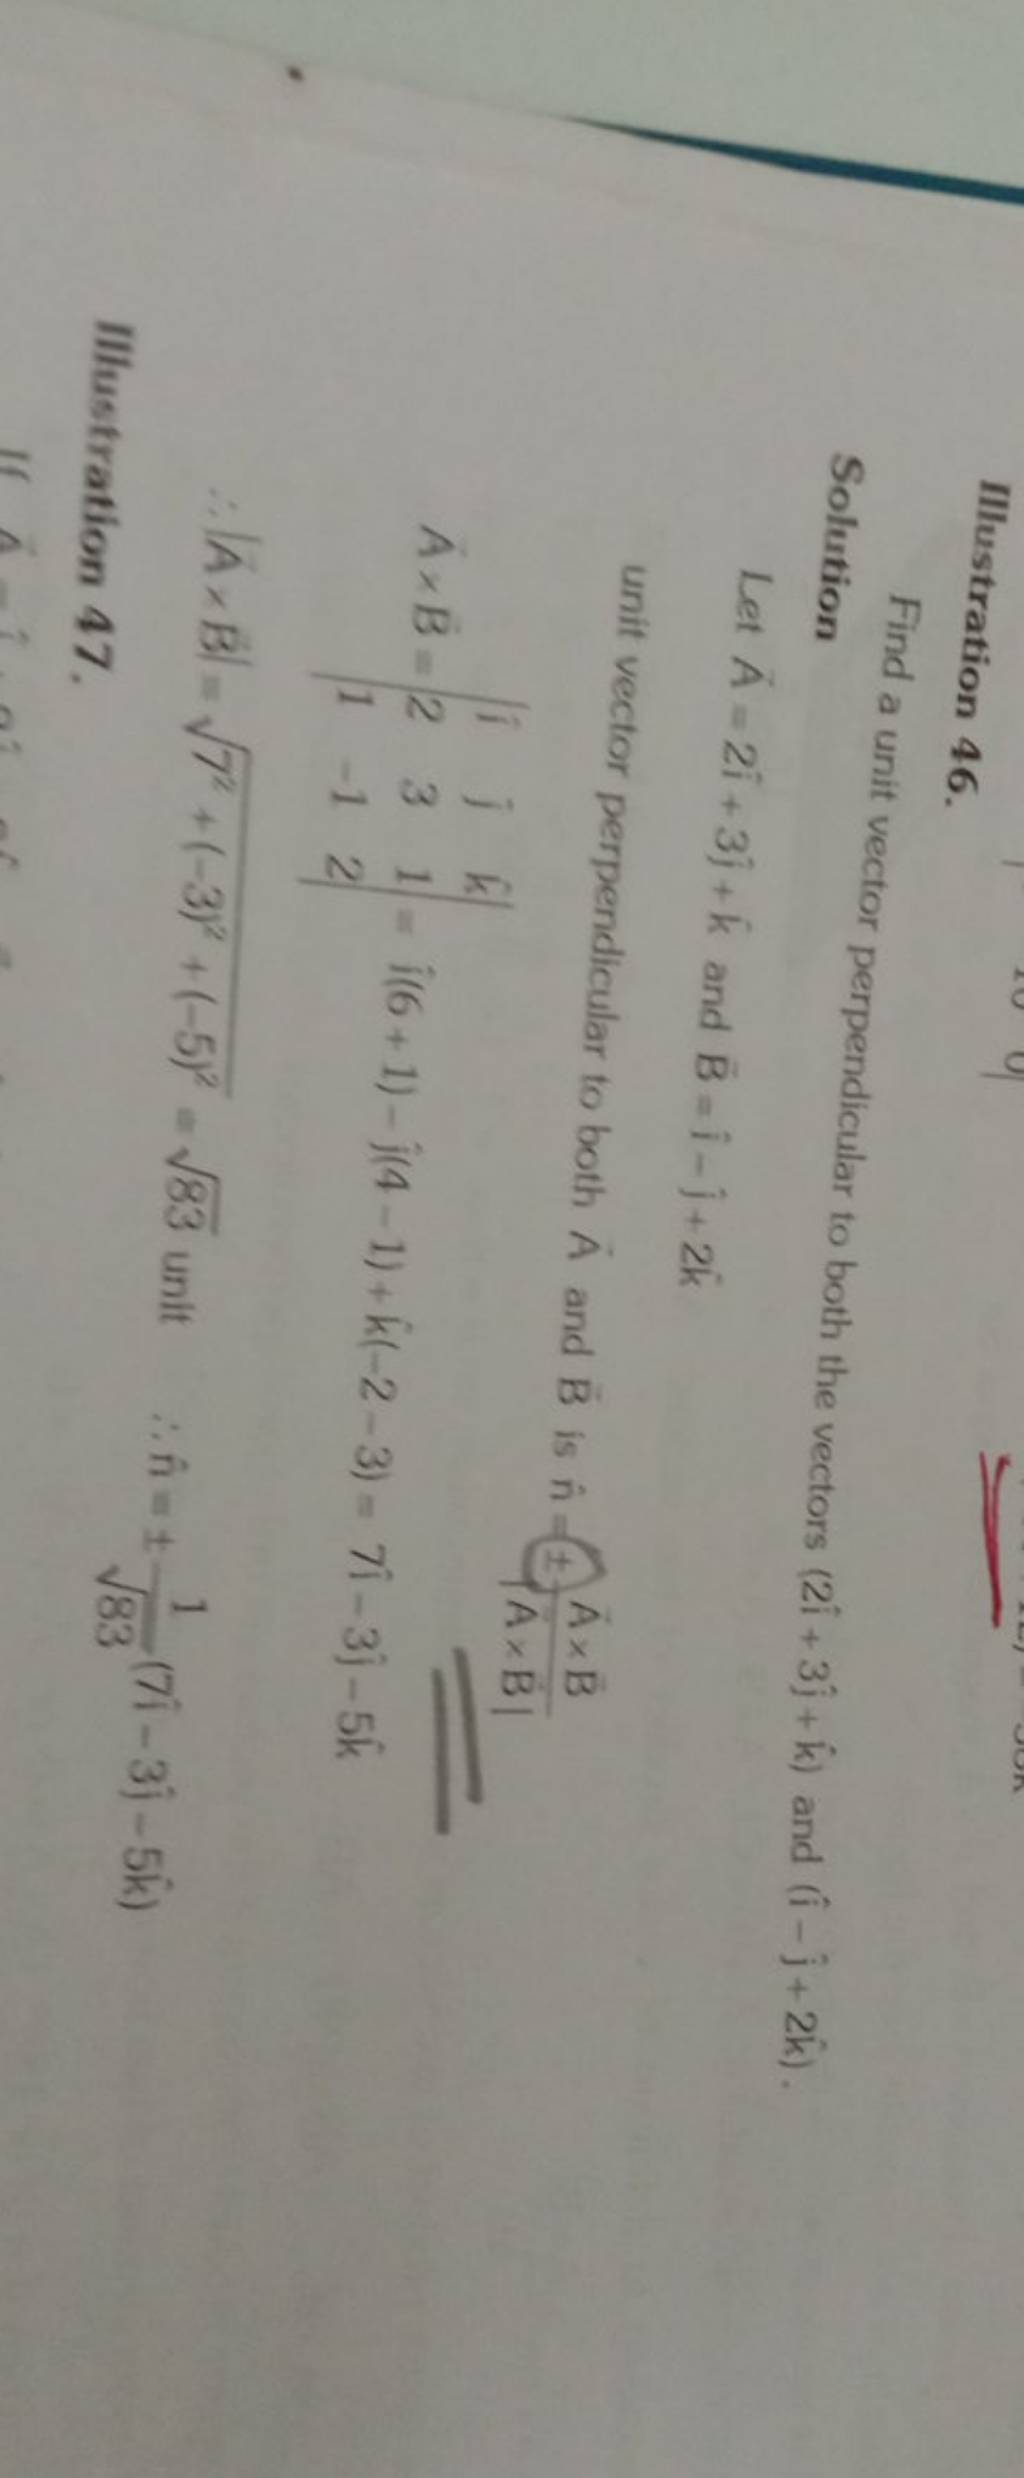 10 0|
Illustration 46.
Find a unit vector perpendicular to both the vectors (2î + 3ĵ + k̂) and (î – ĵ + 2k̂).
Solution
Let A⃗ = 2î + 3ĵ + k̂ and B⃗ = î – ĵ + 2k̂
unit vector perpendicular to both A⃗ and B⃗ is n̂ = ± (A⃗ × B⃗)/|A⃗ × B⃗|
A⃗ × B⃗ = |î ĵ k̂; 2 3 1; 1 -1 2| = î(6 + 1) – ĵ(4 – 1) + k̂(–2 – 3) = 7î – 3ĵ – 5k̂
∴ |A⃗ × B⃗| = √(7² + (–3)² + (–5)²) = √83 unit ∴ n̂ = ± 1/√83 (7î – 3ĵ – 5k̂)
Illustration 47.
If A⃗ = î